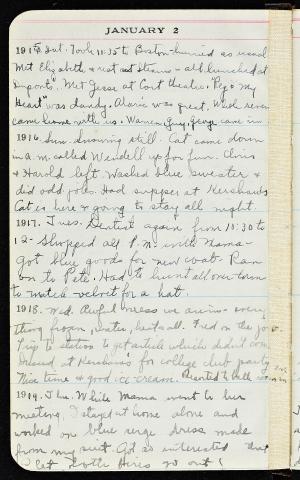 JANUARY 2
1915 Sat. Took 11:35 to Boston - hurried as usual
Met Elizabeth & rest at Stearns - all lunched at
Duponts. Met Jesse at Cort theatre. "Peg o my
Heart" was dandy. Alaric was great. Whole seven
came home with us. Warren, Guy, George came in
1916. Sun. Snowing still. Cat came down
in a.m. called Wendell up for fun. Chris
& Harold left. Washed blue sweater &
did odd jobs. Had supper at Kershaws
Cat is here & going to stay all night.
1917. Tues. Dentist again from 10:30 to
12 - Shopped all P.M. with Mama -
got blue goods for new coat. Ran
on to Pete. Had to hunt all over town
to match velvet for a hat.
1918. Wed. Awful mess we are in - every
thing frozen, water, heat & all. Fred on the job
Trip to station to get article which didn't come
Dressed at Kershaw's for college club party
Nice time & good ice cream.
1919. Thu. While Mama went to her
meeting, I stayed at home alone and
worked on blue serge dress made
from my suit. Got so interested that
I let both fires go out!